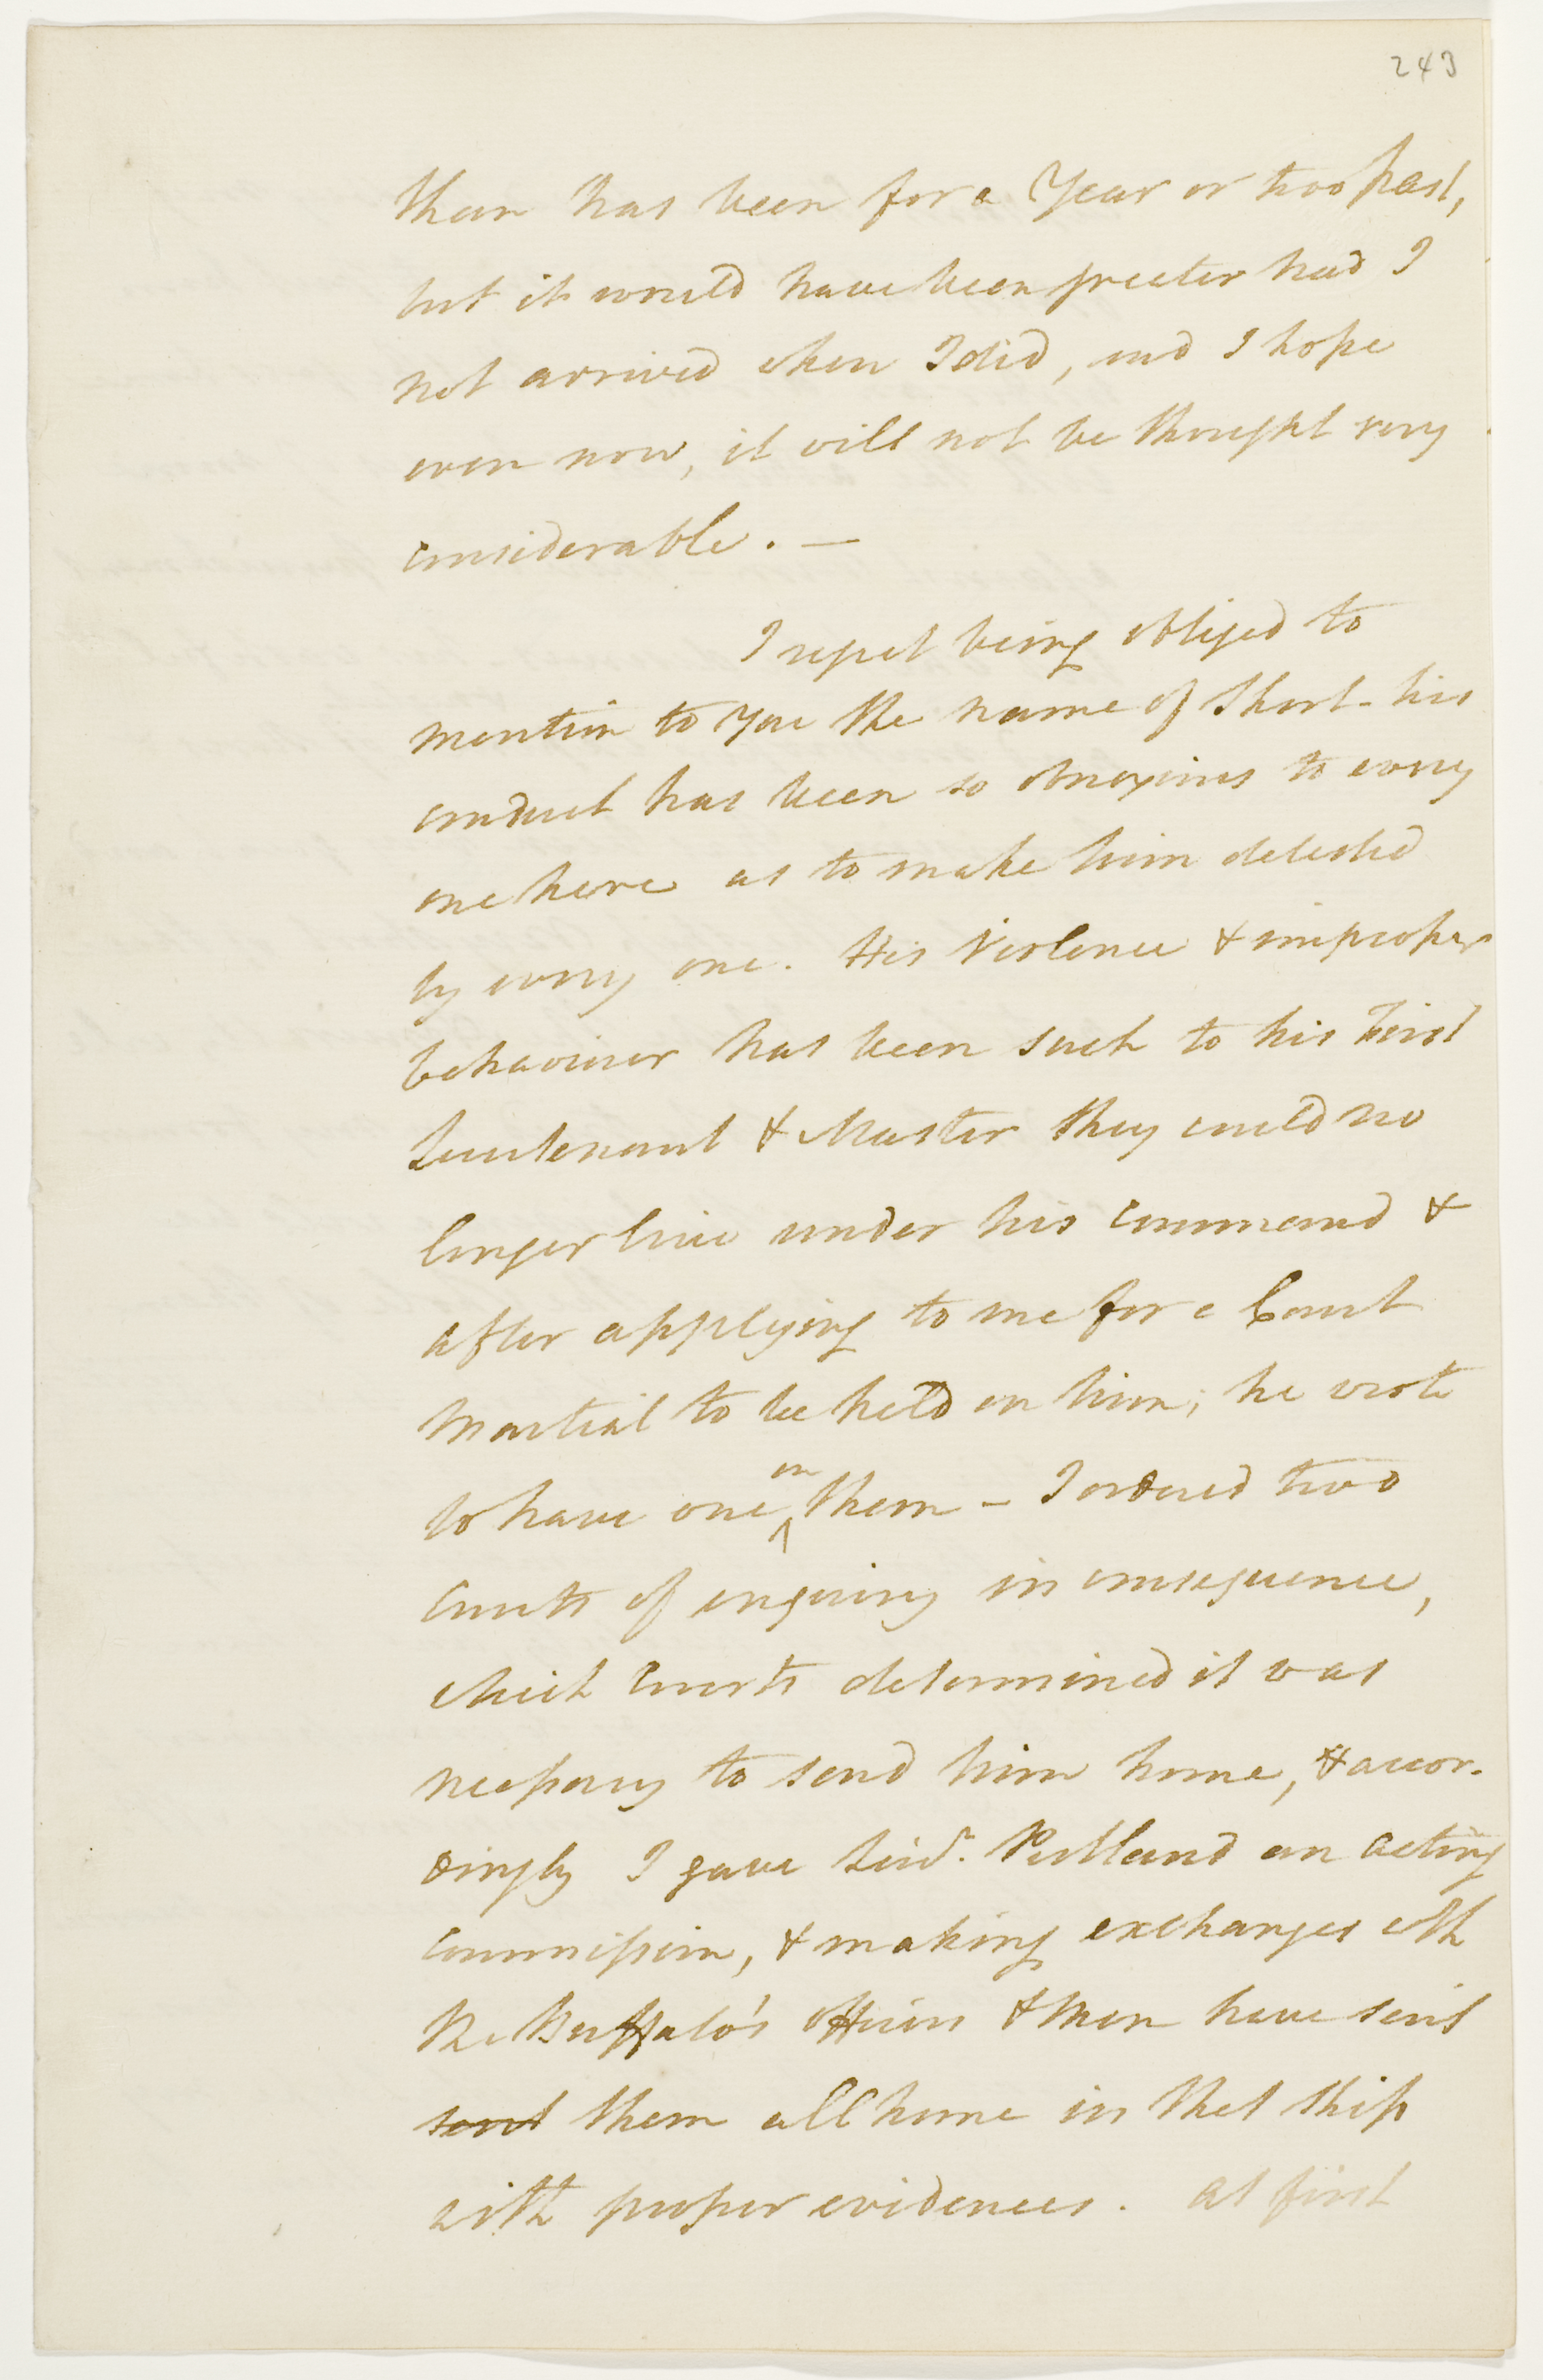 243
than has been for a Year or two past,
but it would have been greater had I
not arrived when I did, and I hope
even now, it will not be thought very
considerable. —
I regret being obliged to
mention to You the name of Short - his
conduct has been so obnoxious to every
one here as to make him detested
by every one. His Violence & improper
behaviour has been such to his first
Lieutenant & Master they could no
longer live under his command &
after applying to me for a Court
Martial to be held on him; he wrote
to have one on them - I ordered two
Courts of enquiry in consequence,
which Courts determined it was
necessary to send him home, & accor-
dingly I gave Lieut. Putland an acting
commission, & making exchanges with
the Buffalo's officers & Men have sent
sent them all home in that ship
with proper evidences. At first